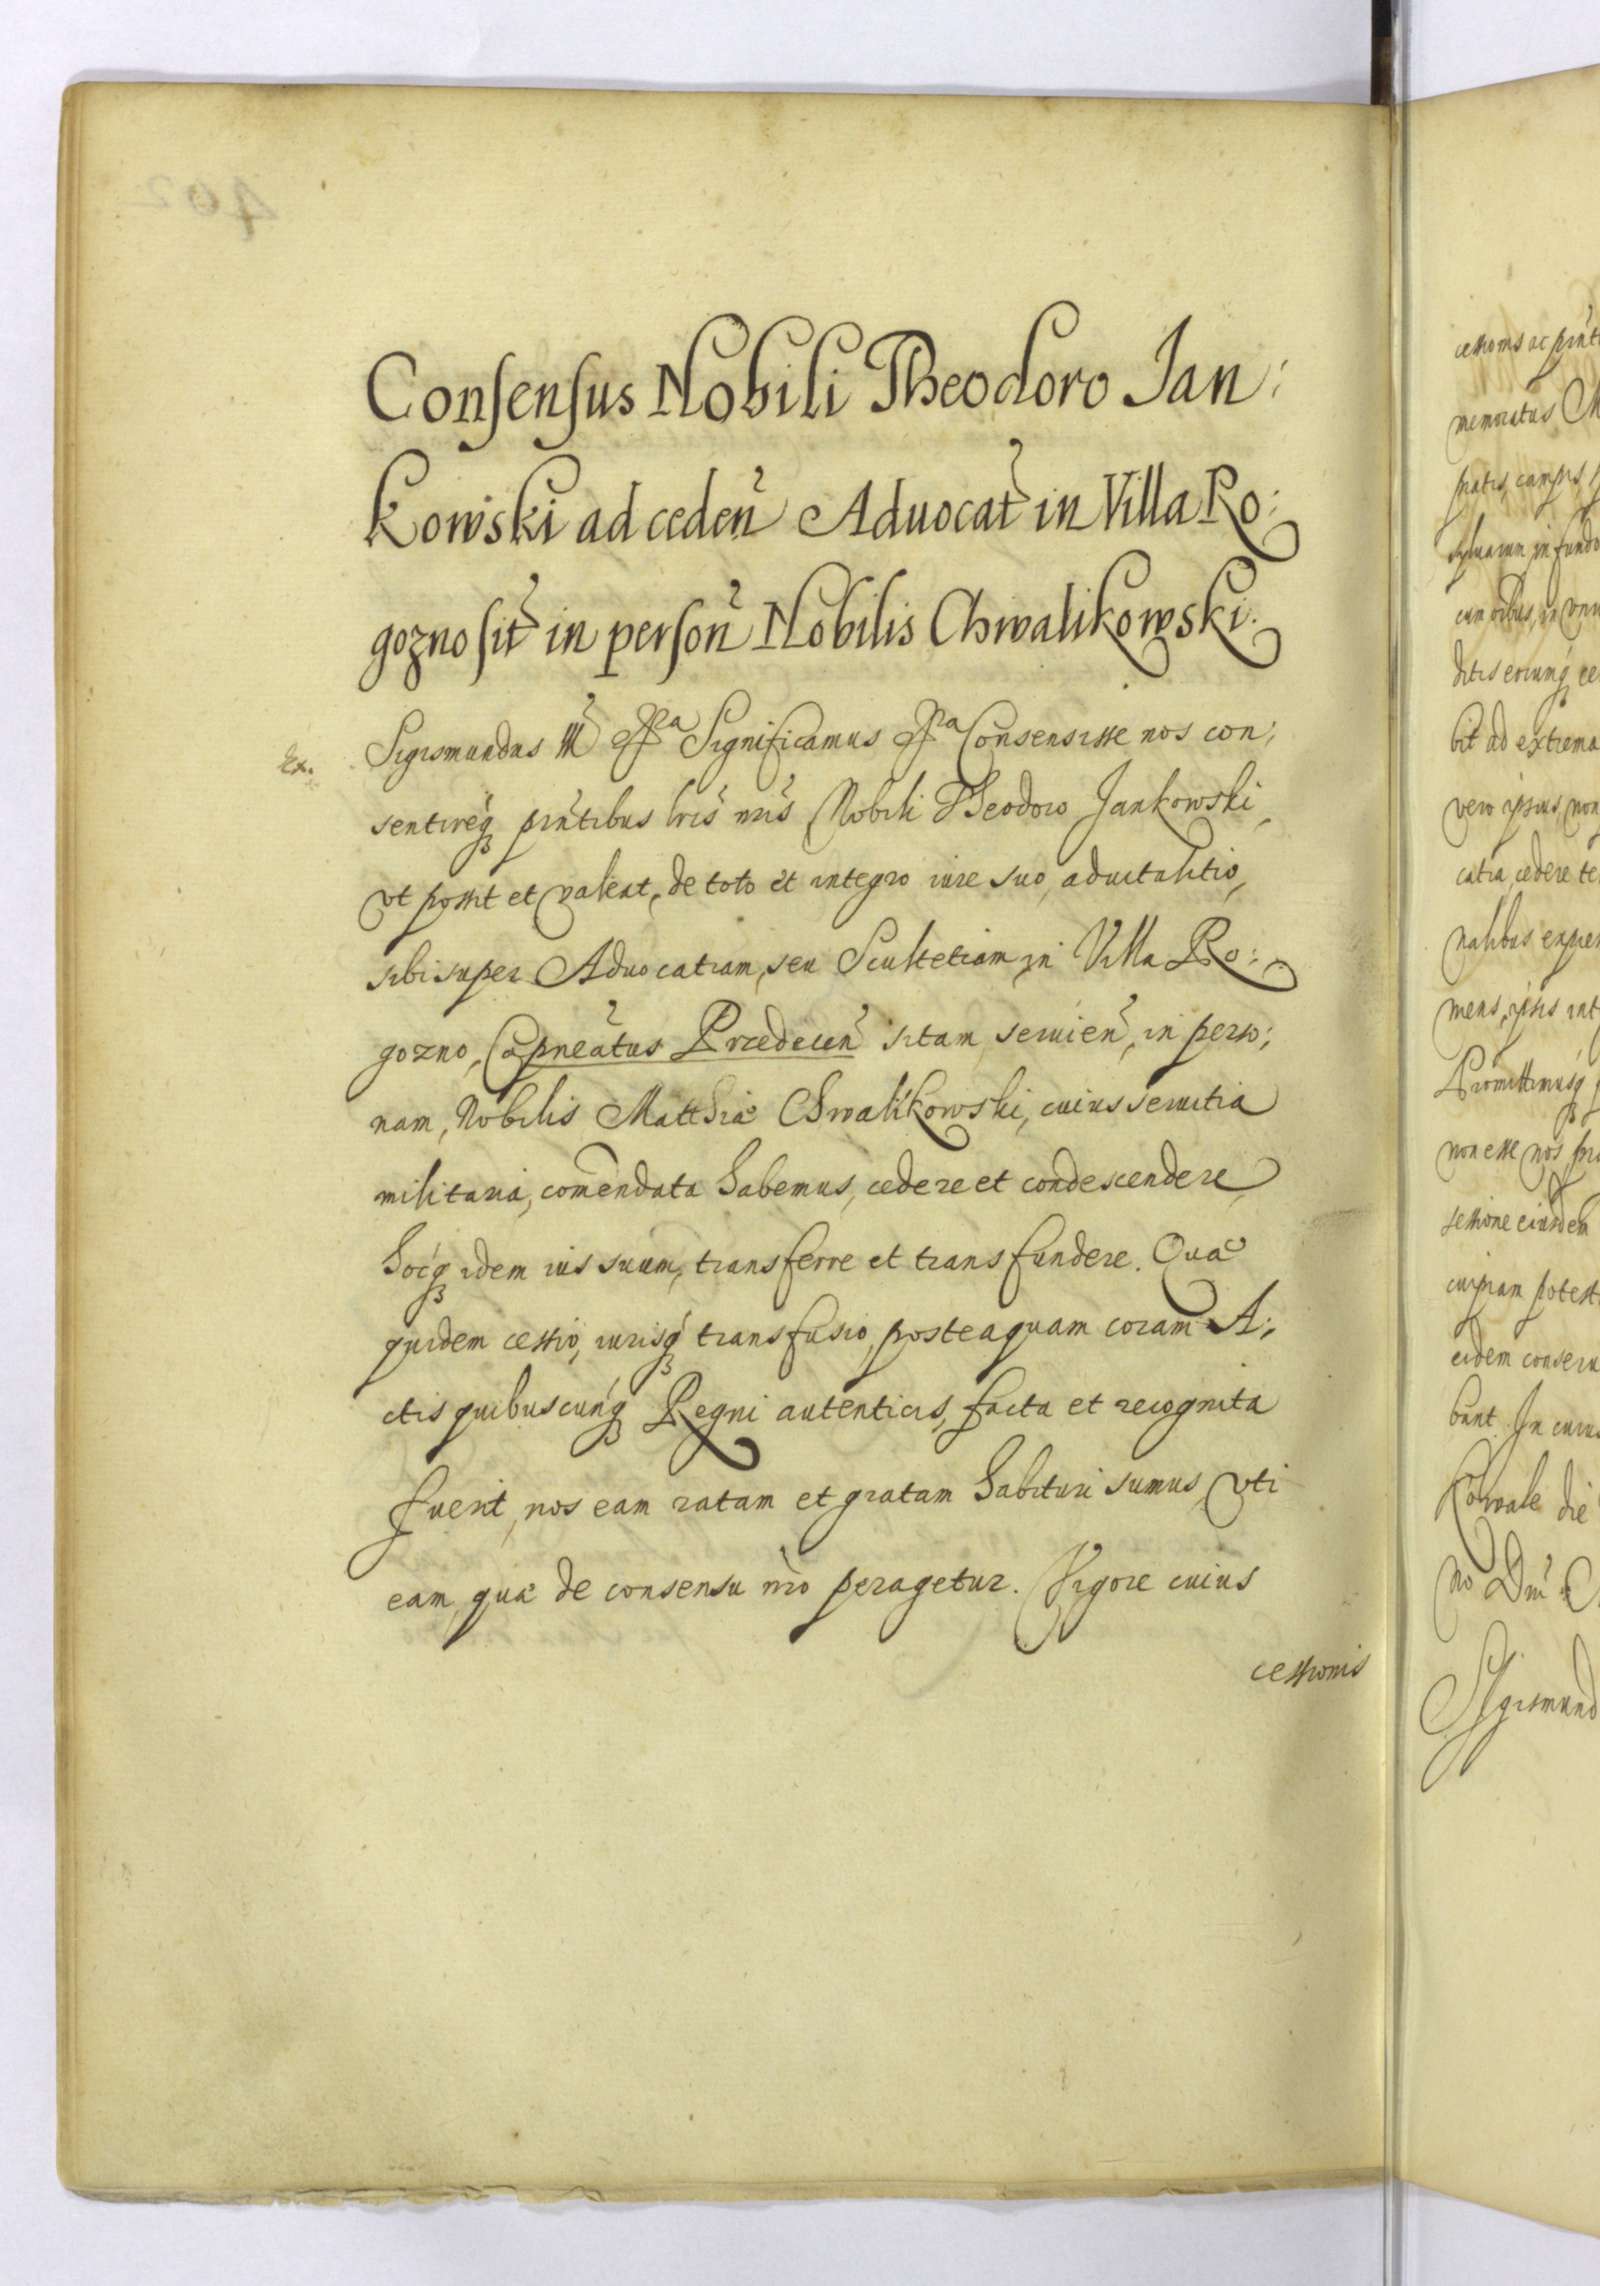 Consensus Nobili Theodoro Jan:
kowski ad ceden̄ Aduocat̄ in Villa Ro:
gozno sit̄ in person̄ Nobilis Chwalikowski.
Sigismundus III Significamus Consensisse nos con:
sentireq̃ pn̄tibus lr̄is nr̄is Nobili Theodoro Jankowski,
vt possit et valeat, de toto et integro iure suo, aduitalitio,
sibi super Aduocatiam, seu Scultetiam, in Villa Ro:
gozno, Capneātus sitam, seruien̄, in perso:
nam, Nobilis Matthiæ Chwalikowski, cuius seruitia
militaria, comendata habemus, cedere et condescendere,
hocq̃ idem ius suum, transferre et transfundere. Quæ
quidem cessio, iurisq̃ transfusio, posteaquam coram A:
ctis quibuscunq̃ Regni autenticis, facta et recognita
fuerit, nos eam ratam et gratam habituri sumus, vti
eam, quæ de consensu nr̄o peragetur. Vigore cuius
cessionis
memoratus
pratis, campis,
bit ad extrema
vero ipsius, non
catia, cedere
Promittimusq̃
non esse nos
sessione eiusdem
cuipiam
eidem
bunt. In cuius
die
Sigismund